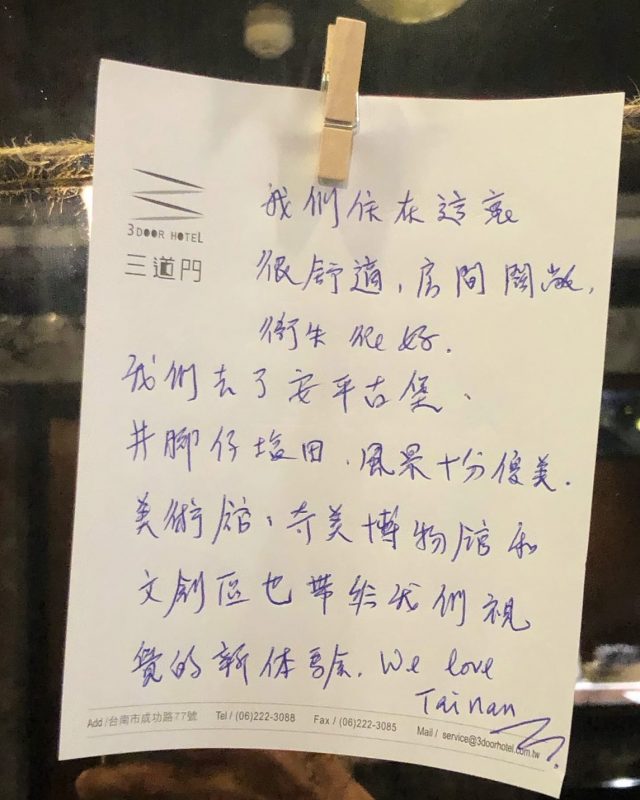 3DOOR HOTEL
三道門
我們住在這裏
很舒適，房間開敞，
衛生很好.
我們去了安平古堡、
井腳仔塩田，風景十分優美.
美術館、奇美博物館和
文創區也帶給我們視
覺的新体驗. We love
Tainan
Add /台南市成功路77號 Tel / (06)222-3088 Fax / (06)222-3085 Mail / service@3doorhotel.com.tw